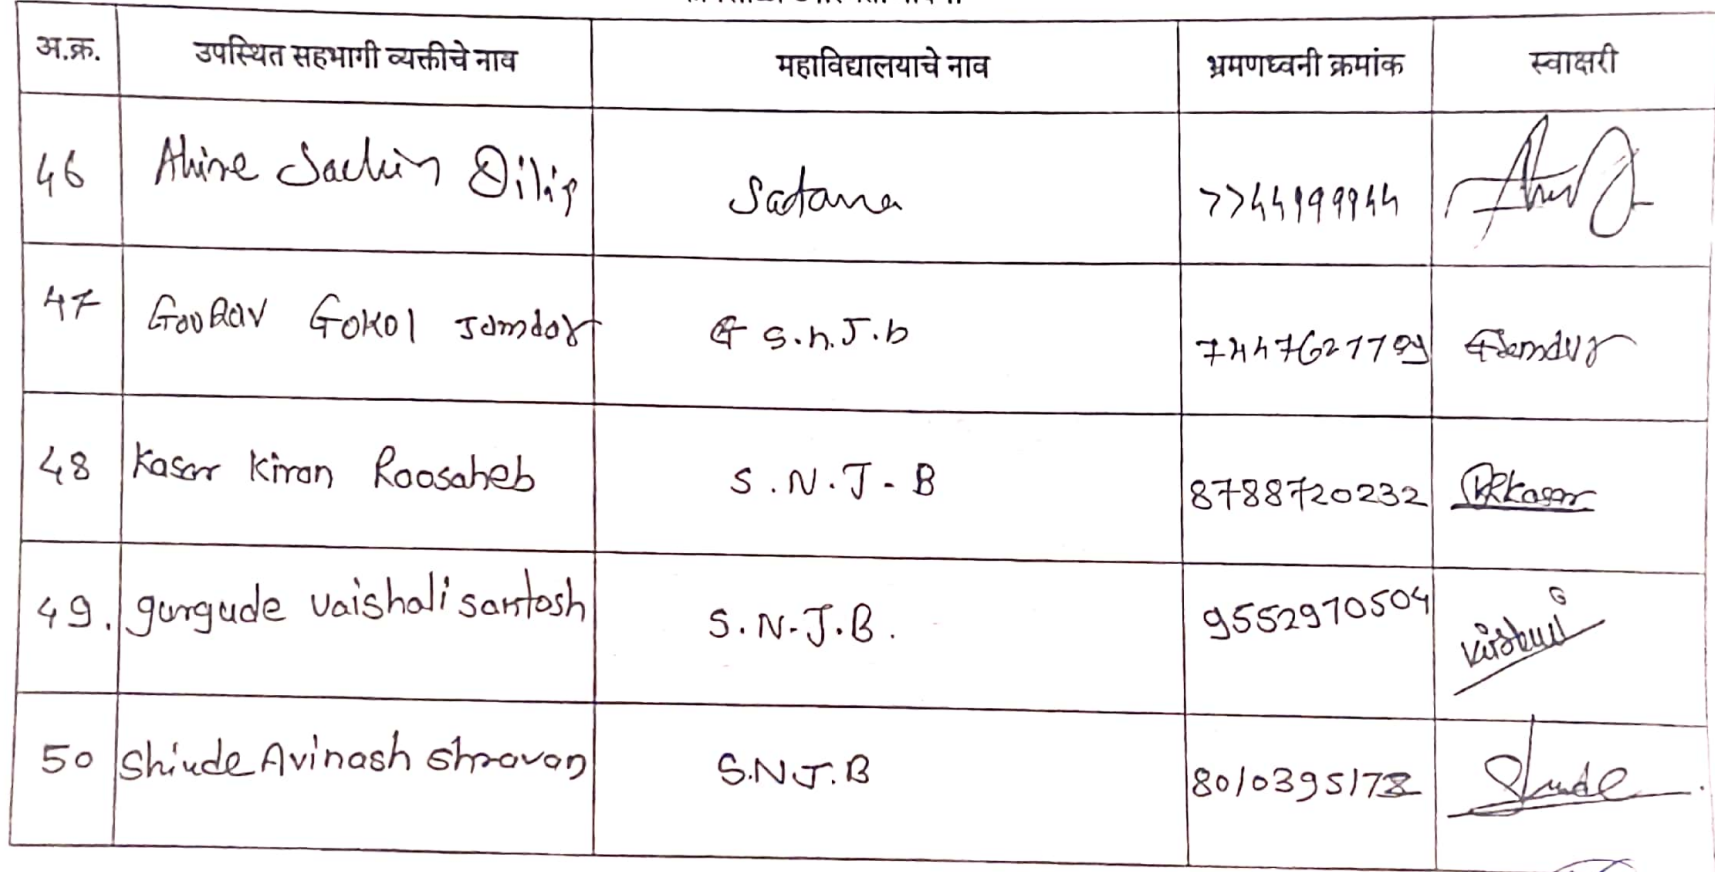 अ.क्र. उपस्थित सहभागी व्यक्तीचे नाव महाविद्यालयाचे नाव भ्रमणध्वनी क्रमांक स्वाक्षरी
46 Ahire Sachin Dilip Satana 7744999944
47 Gourav Gokol Jamdar S.n.J.b 7447621799 Jamdar
48 Kasar Kiran Raosaheb S.N.J-B 8788720232 KRKasar
49. gurgude vaishali santosh S.N.J.B. 9552970504
50 Shinde Avinash Shravan S.N.J.B 8010395173 Shinde